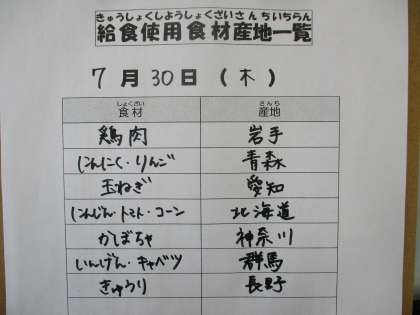 きゅうしょくしようしょくざいさんちいちらん
給食使用食材産地一覧
7月30日(木)
しょくざい さんち
食材 産地
鶏肉 岩手
にんにく・りんご 青森
玉ねぎ 愛知
にんじん・トマト・コーン 北海道
かぼちゃ 神奈川
いんげん・キャベツ 群馬
きゅうり 長野